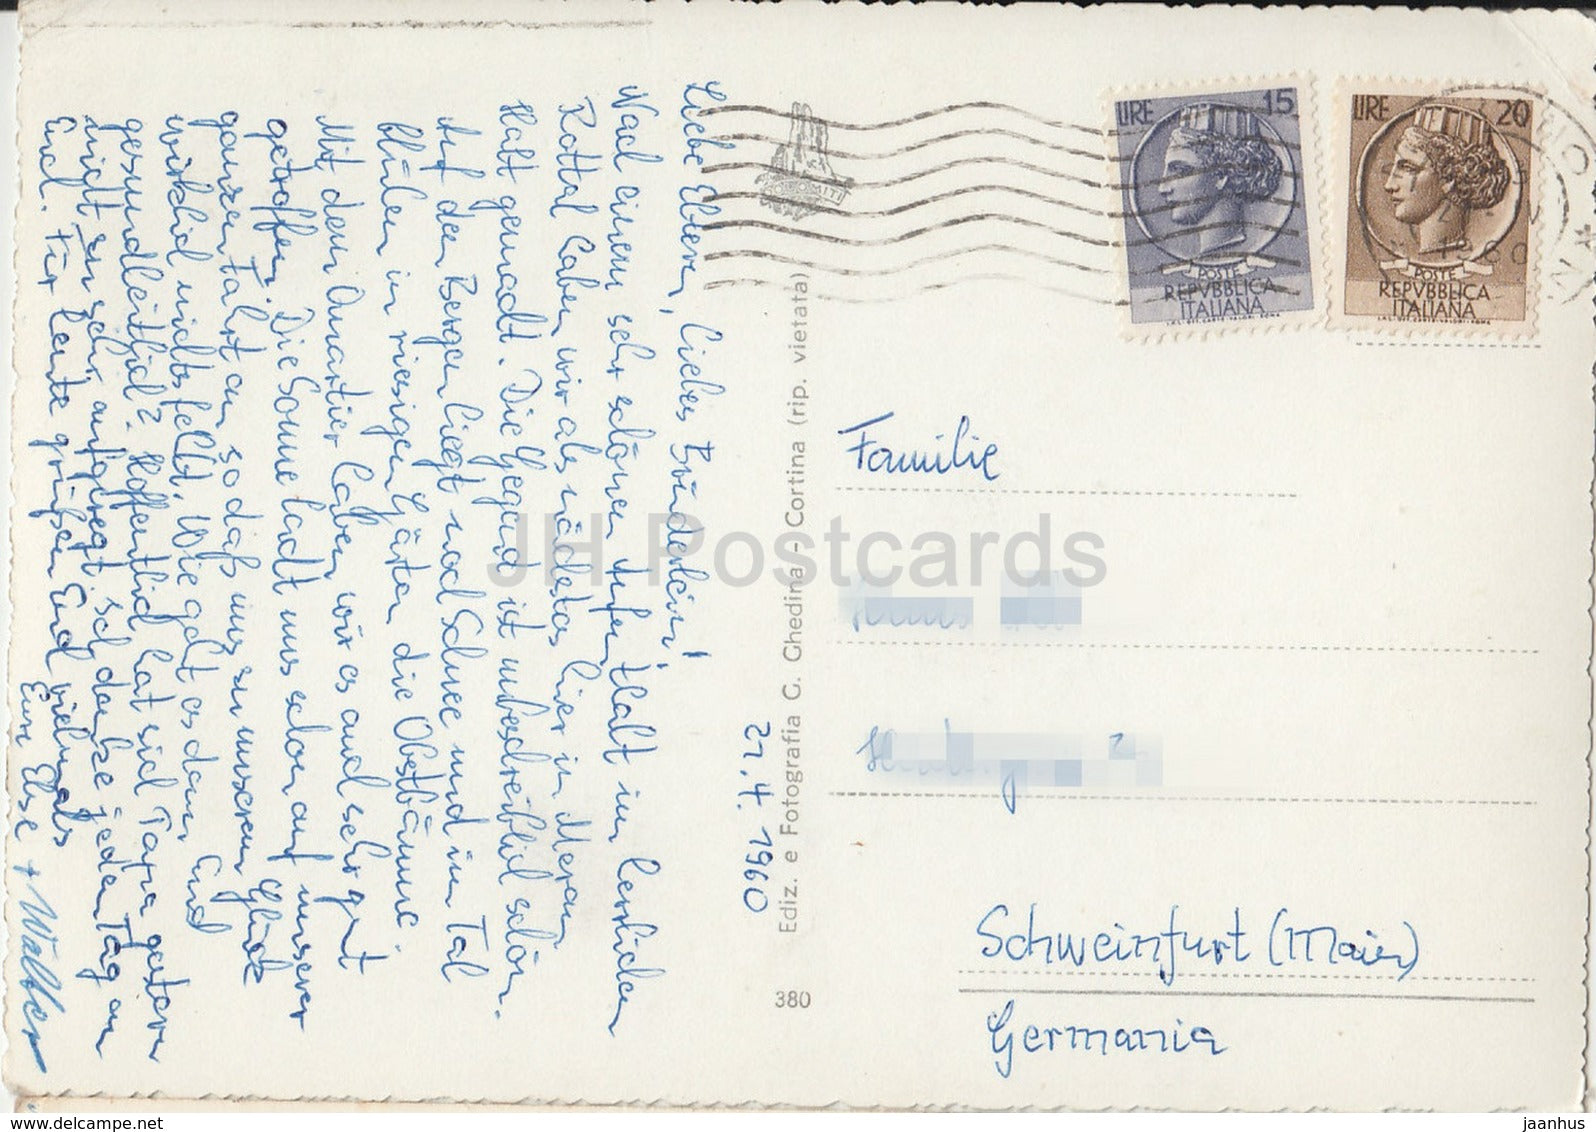 21.4.1960
Liebe Eltern, liebes Brüderlein!
Nach einem sehr schönen Aufenthalt im herrlichen
haben wir als nächstes hier in Meran
Halt gemacht. Die Gegend ist unbeschreiblich schön.
Auf den Bergen liegt noch Schnee und im Tal
blühen in riesigen Gärten die Obstbäume.
Mit dem Quartier haben wir es auch sehr gut
getroffen. Die Sonne lacht uns schon auf unserer
ganzen Fahrt an, so daß uns zu unserem Glück
wirklich nichts fehlt. Wie geht es denn Euch
gesundheitlich? Hoffentlich hat sich Papa gestern
nicht zu sehr aufgeregt. Ich denke jeden Tag an
Euch. Für heute grüßen Euch vielmals
Eure Else + Walter
DOLOMITI
Ediz. e Fotografia G. Ghedina - Cortina (rip. vietata)
380
LIRE 15
POSTE
REPVBBLICA
ITALIANA
I.P.S. OFF. CARTE-VALORI-ROMA
LIRE 20
POSTE
REPVBBLICA
ITALIANA
I.P.S. OFF. CARTE-VALORI-ROMA
Familie
Schweinfurt (Main)
Germania
JH Postcards
www.delcampe.net
jaanhus